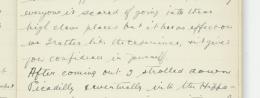 everyone is scared of going into these
high class places but it has no effect on
me I rather like the experience, it gives
you confidence in yourself
After coming out I strolled down
Picadilly & eventually into the Hippo-